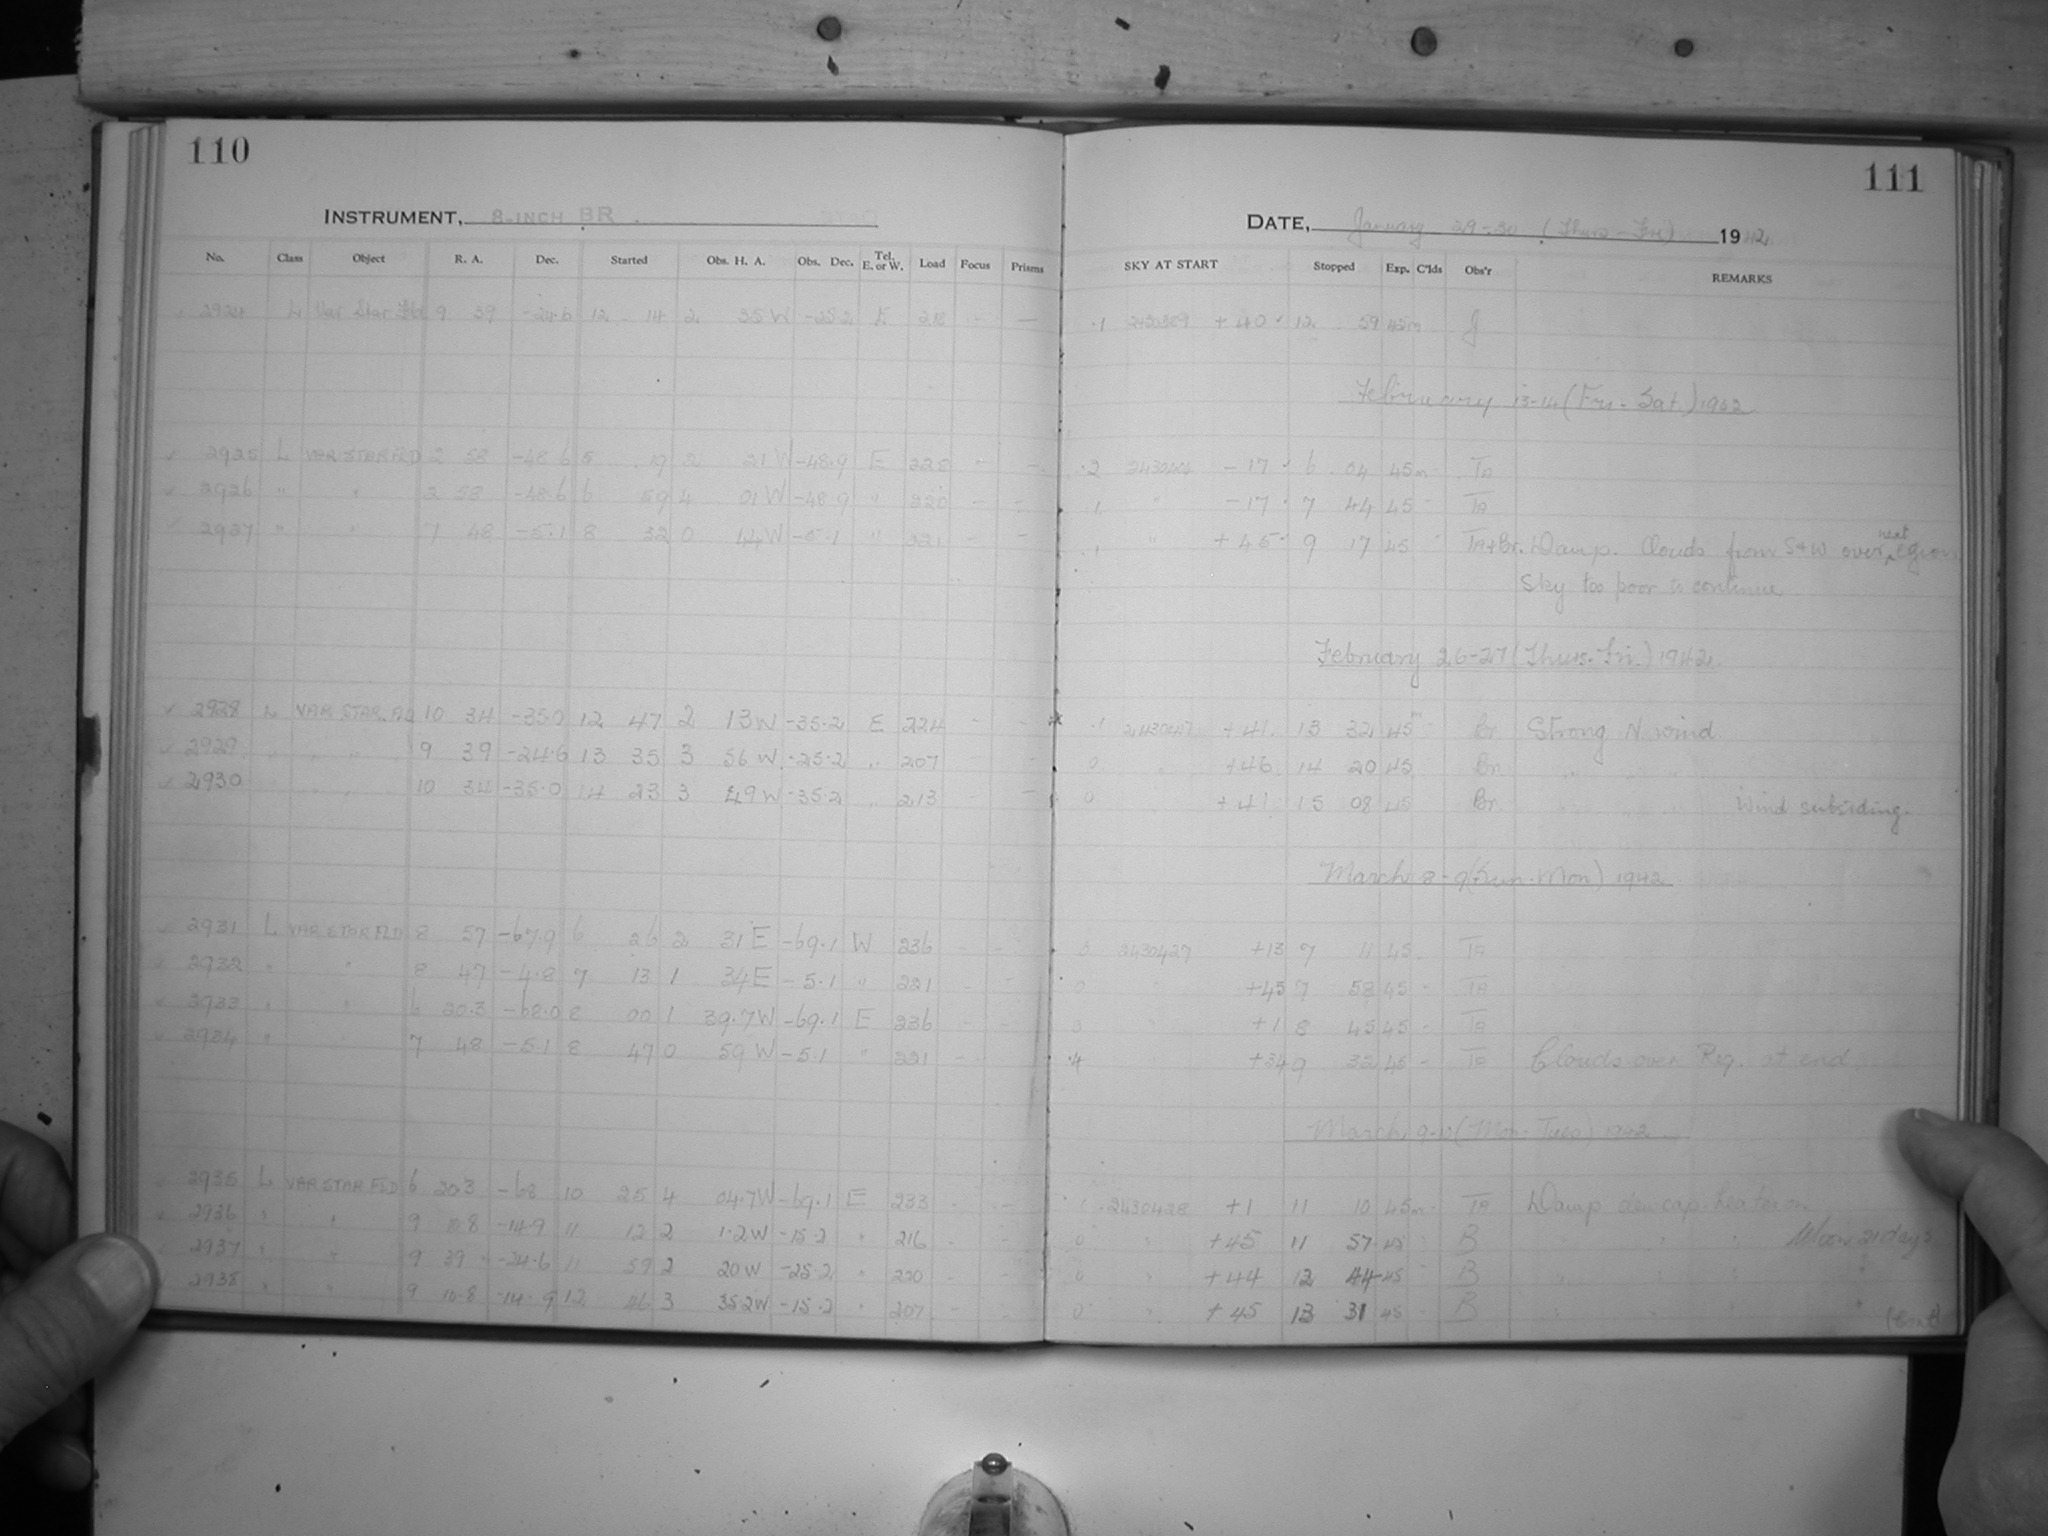 110
INSTRUMENT, 8-INCH BR.
No. Class Object R. A. Dec. Started Obs. H. A. Obs. Dec. Tel. E. or W. Load Focus Prisms
2924 L Var Star Fld 9 39 -24.6 12 14 2 35 W -25.2 E 218 - -
2925 L VAR STAR FLD 2 58 -48.6 5 19 2 21 W -48.9 E 228 - -
2926 " " 2 58 -48.6 6 59 4 01 W -48.9 " 220 - -
2927 " " 7 48 -5.1 8 32 0 44 W -5.1 " 221 - -
2928 L VAR STAR FLD 10 34 -35.0 12 47 2 13 W -35.2 E 224 - -
2929 " " 9 39 -24.6 13 35 3 56 W -25.2 " 207 - -
2930 " " 10 34 -35.0 14 23 3 49 W -35.2 " 213 - -
2931 L VAR STAR FLD 8 57 -67.9 6 26 2 31 E -69.1 W 236 - -
2932 " " 8 47 -4.8 7 13 1 34 E -5.1 " 221 - -
2933 " " 6 20.3 -68.0 8 00 1 39.7 W -69.1 E 236 - -
2934 " " 7 48 -5.1 8 47 0 59 W -5.1 " 221 - -
2935 L VAR STAR FLD 6 20.3 -68 10 25 4 04.7 W -69.1 E 233 - -
2936 " " 9 10.8 -14.9 11 12 2 1.2 W -15.2 " 216 - -
2937 " " 9 39 -24.6 11 59 2 20 W -25.2 " 220 - -
2938 " " 9 10.8 -14.9 12 46 3 35.2 W -15.2 " 207 - -
111
DATE, January 29-30 (Thurs-Fri) 1942
SKY AT START Stopped Exp. C'lds Obs'r REMARKS
.1 2430389 +40 12 59 45m J
February 13-14 (Fri-Sat.) 1942
.2 2430404 -17 6 04 45m TA
.1 " -17 7 44 45 TA
.1 " +45 9 17 45 TA+Br. Damp. Clouds from S+W over next region
Sky too poor to continue
February 26-27 (Thurs.-Fri.) 1942
.1 2430417 +41 13 32 45m Br. Strong N wind
0 " +46 14 20 45 Br. " " "
0 " +41 15 08 45 Br. " " " Wind subsiding.
March 8-9 (Sun-Mon) 1942
0 2430427 +13 7 11 45 TA
0 " +45 7 58 45 - TA
0 " +1 8 45 45 - TA
.4 " +34 9 32 45 - TA Clouds over Reg. at end
March 9-10 (Mon-Tues) 1942
.1 2430428 +1 11 10 45m TA Damp dewcap heater on
0 " +45 11 57 45 B " " " Moon 21 days
0 " +44 12 44 45 B " " " "
0 " +45 13 31 45 B " " " "
(Cont)